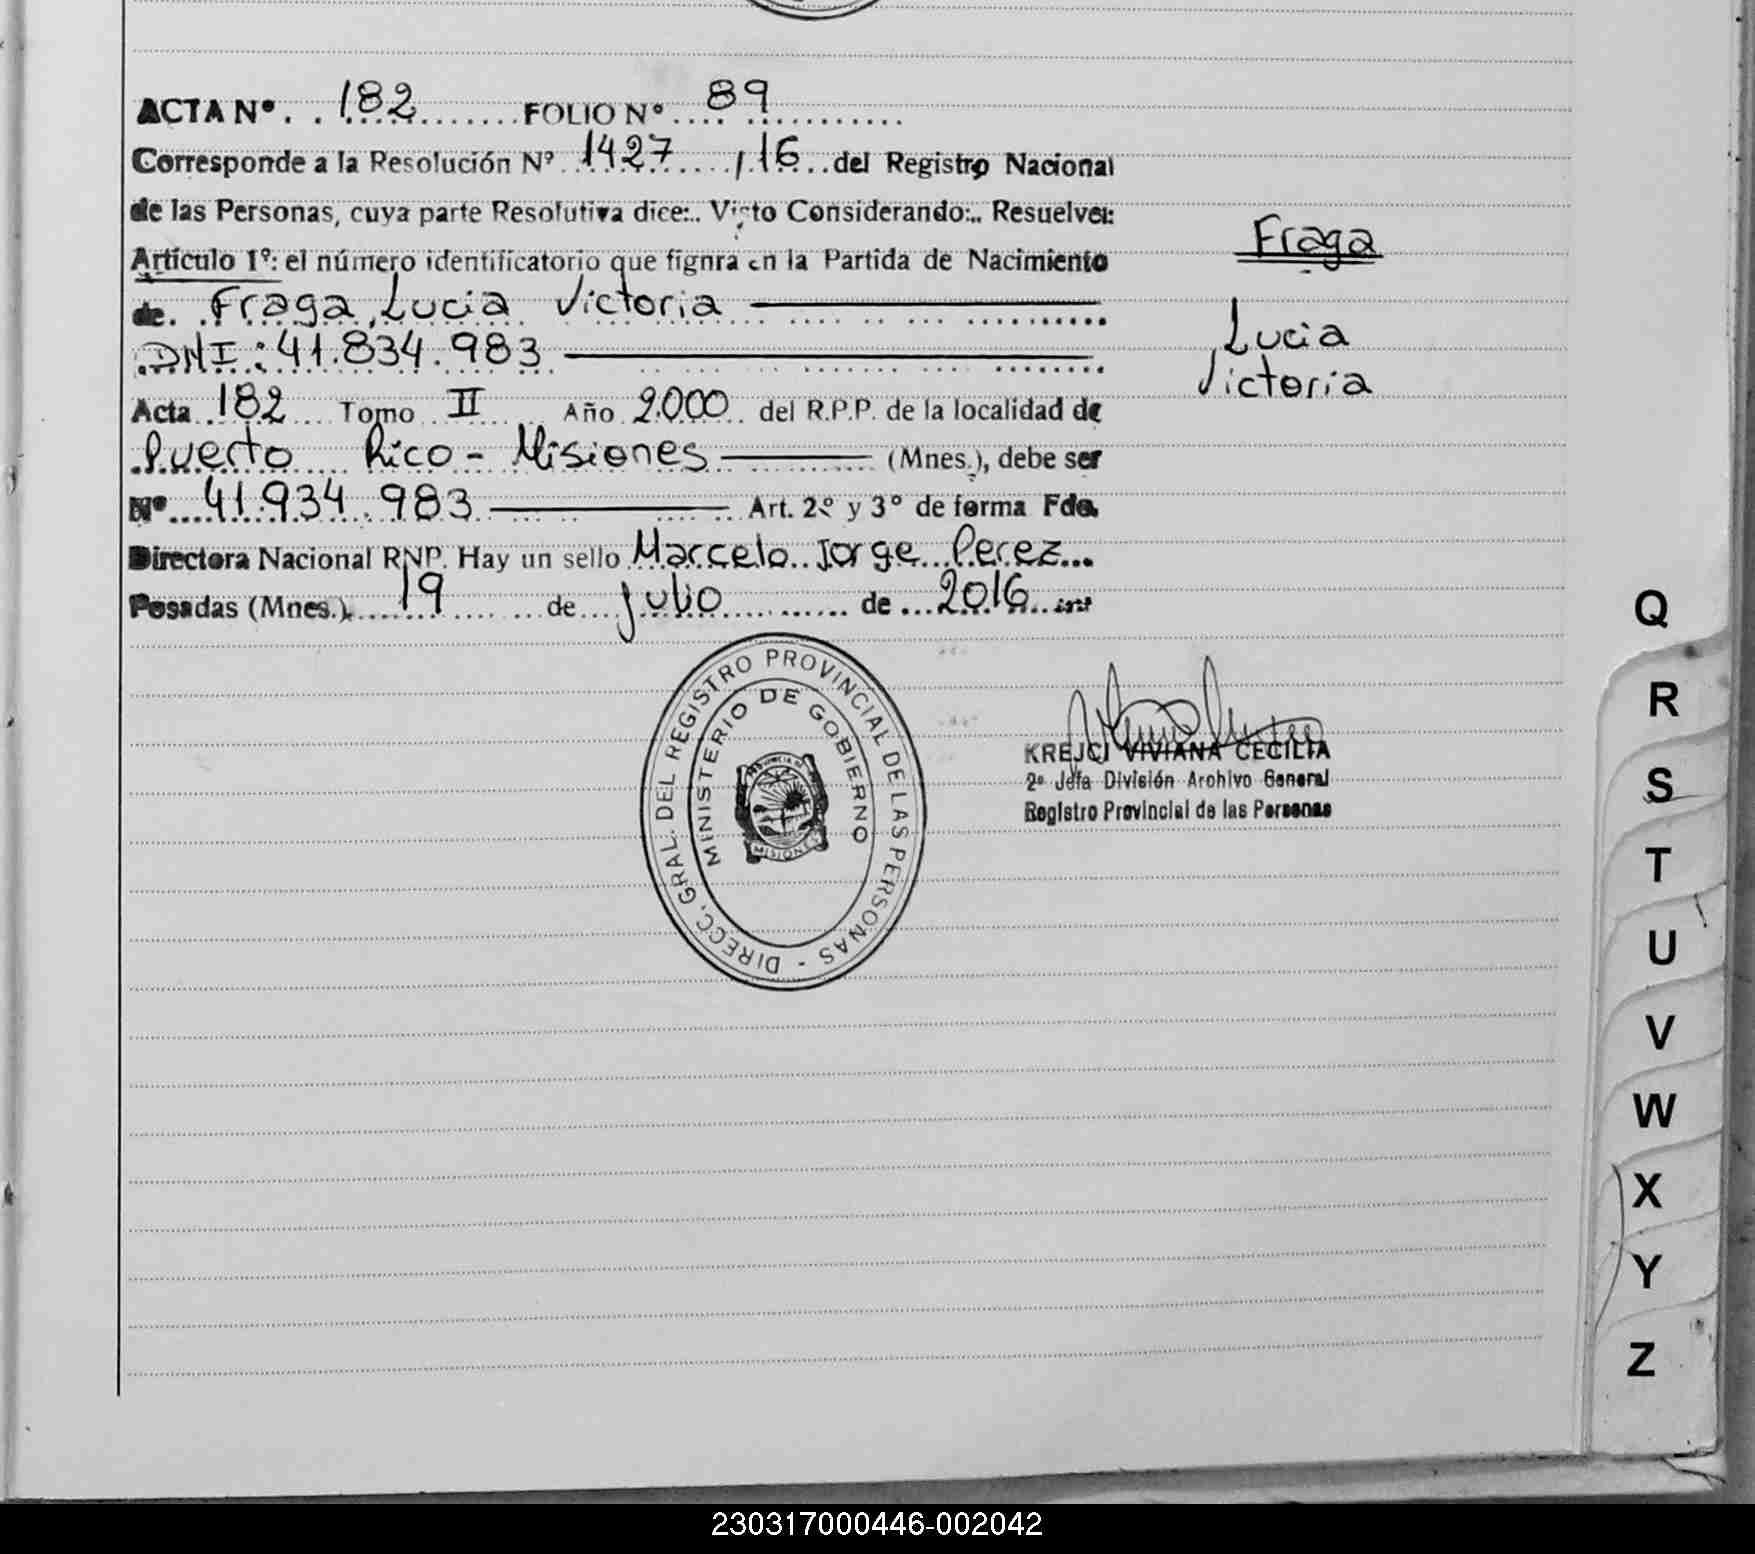 ACTA Nº. . 182 FOLIO Nº 89
Corresponde a la Resolución Nº 1427 / 16 del Registro Nacional
de las Personas, cuya parte Resolutiva dice:.. Visto Considerando:.. Resuelve:
Artículo 1º: el número identificatorio que fignra en la Partida de Nacimiento
de. Fraga, Lucia Victoria
DNI: 41.834.983
Acta 182 Tomo II Año 2.000 del R.P.P. de la localidad de
Puerto Rico - Misiones (Mnes.), debe ser
Nº 41.934.983 Art. 2º y 3º de forma Fdo.
Directora Nacional RNP. Hay un sello Marcelo Jorge Perez
Posadas (Mnes.) 19 de Julio de 2016
Fraga
Lucia
Victoria
DIRECC. GRAL. DEL REGISTRO PROVINCIAL DE LAS PERSONAS -
MINISTERIO DE GOBIERNO
PROVINCIA DE
MISIONES
KREJCI VIVIANA CECILIA
2º Jefa División Archivo General
Registro Provincial de las Personas
Q
R
S
T
U
V
W
X
Y
Z
230317000446-002042